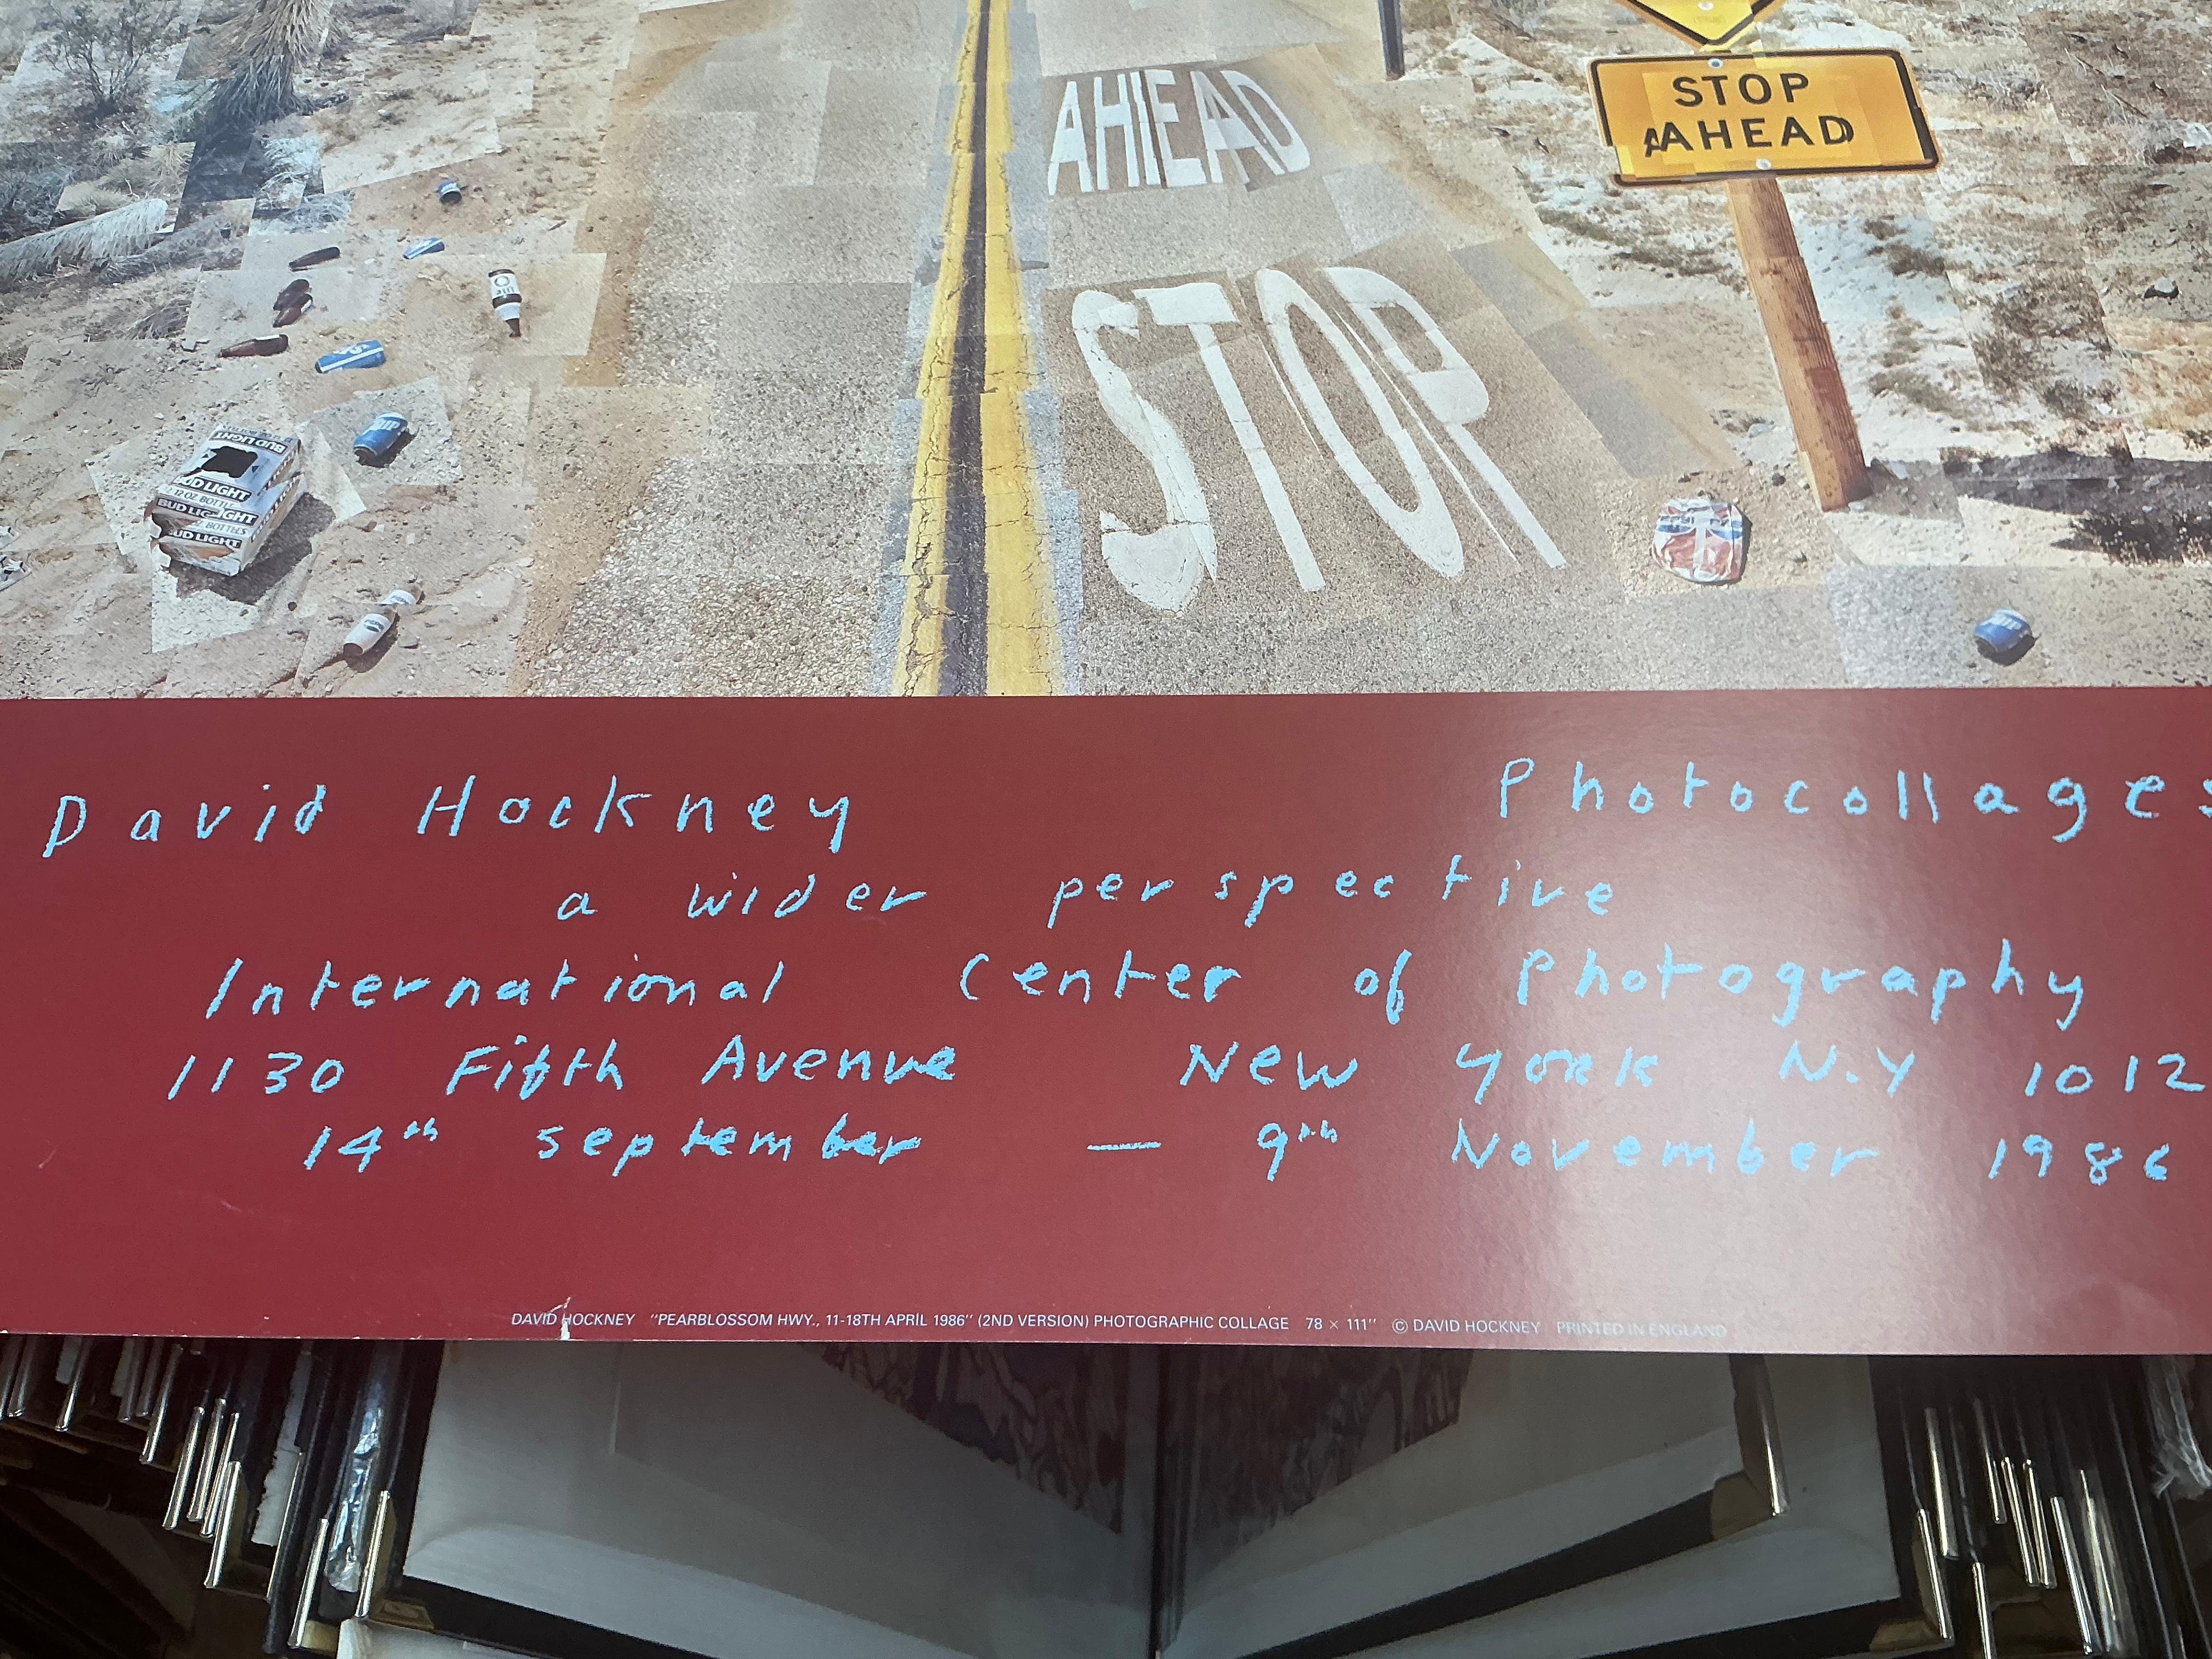 AHEAD
STOP
AHEAD
STOP
BUD LIGHT
BUD LIGHT
12 OZ BOTT
BUD LIGHT
BOTTLES
UD LIGHT
David Hockney Photocollages
a wider perspective
International Center of Photography
1130 Fifth Avenue New York N.Y 1012
14th september — 9th November 1986
DAVID HOCKNEY "PEARBLOSSOM HWY., 11-18TH APRIL 1986" (2ND VERSION) PHOTOGRAPHIC COLLAGE 78 × 111" © DAVID HOCKNEY PRINTED IN ENGLAND